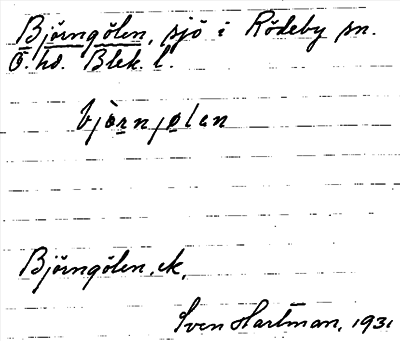 Björngölen, sjö i Rödeby sn.
Ö. hd. Blek. l.
bjò̱rnjølen
Björngölen, ek,
Sven Hartman, 1931